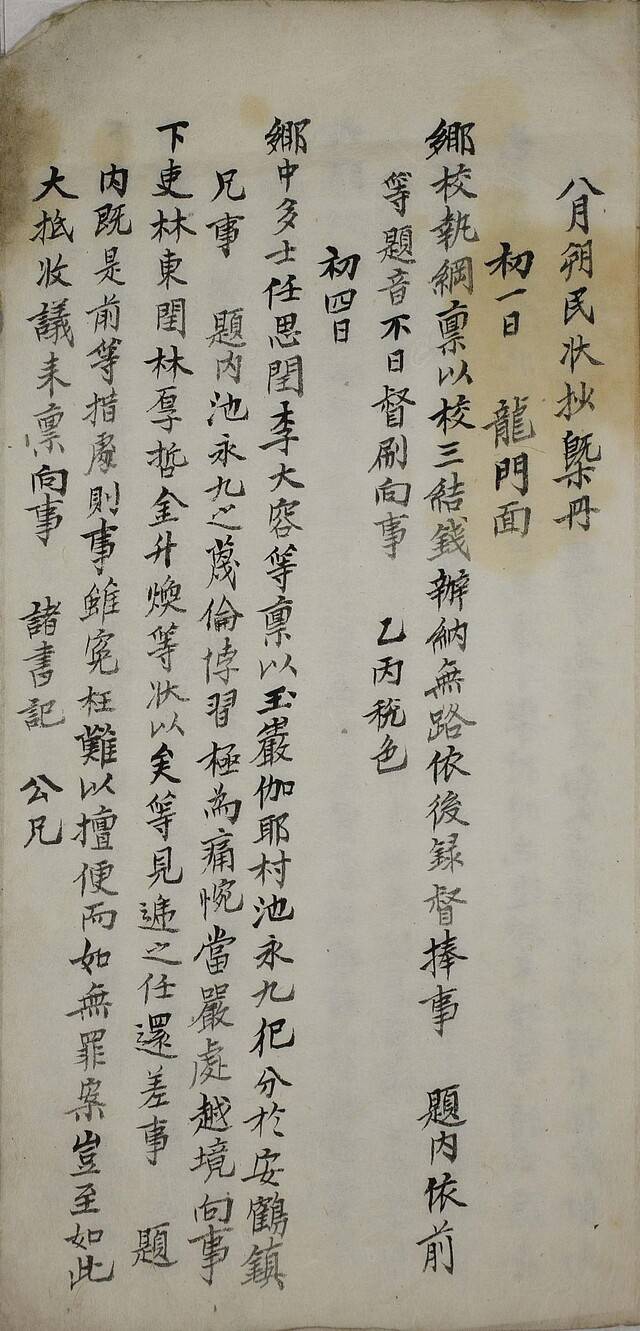 八月朔民狀抄槩冊
初一日　龍門面
鄉校執綱稟以校三結錢辦納無路依後錄督捧事　題內依前
等題音不日督刷向事　乙丙稅色
初四日
鄉中多士任思閏李大容等稟以玉巖伽耶村池永九犯分於安鶴鎭
兄事　題內池永九之蔑倫悖習極爲痛惋當嚴處越境向事
下吏林東閏林厚哲金升煥等狀以矣等見遞之任還差事　題
內旣是前等措處則事雖寃枉難以擅便而如無罪案豈至如此
大抵收議來稟向事　諸書記　公兄